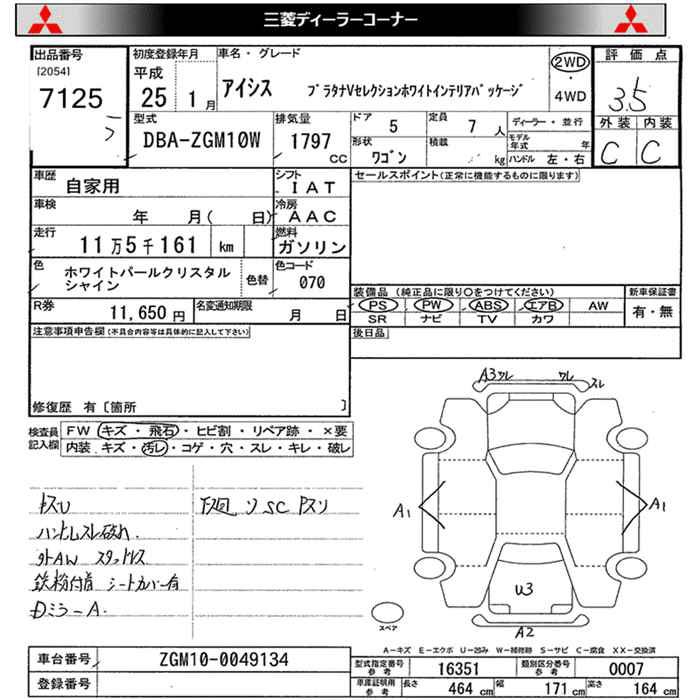 三菱ディーラーコーナー
出品番号
[2054]
7125
初度登録年月
平成
25 1月
車名・グレード
アイシス プラタナVセレクションホワイトインテリアパッケージ
2WD
・
4WD
評価点
3.5
外装 内装
C C
型式
DBA-ZGM10W
排気量
1797
CC
ドア 5
定員 7人
形状 ワゴン
積載 kg
ディーラー・並行
モデル年式 年
ハンドル 左・右
車歴 自家用
シフト IAT
セールスポイント(正常に機能するものに限ります)
車検 年 月( 日)
冷房 AAC
走行 11万5千161 km
燃料 ガソリン
色 ホワイトパールクリスタルシャイン
色替
色コード 070
R券 11,650円
名変通知期限 月 日
装備品(純正品に限り○をつけてください)
PS PW ABS エアB AW
SR ナビ TV カワ
新車保証書
有・無
注意事項申告欄(不具合内容等は具体的に記入して下さい)
後日品
修復歴 有[箇所 ]
検査員記入欄
FW キズ・飛石・ヒビ割・リペア跡・×要
内装 キズ・汚レ・コゲ・穴・スレ・キレ・破レ
トスリ
ハンドルスレ破れ
外AW スタッドレス
鉄粉付着 シートカバー有
Dミラ-A
下廻リSCトスリ
A3ワレ ワレ スレ
A1 A1
U3
A2
スペア
A-キズ E-エクボ U-凹み W-補修跡 S-サビ C-腐食 XX-交換済
車台番号 ZGM10-0049134
登録番号
型式指定番号 参考 16351
類別区分番号 参考 0007
車庫証明用 参考 長さ 464cm 幅 171cm 高さ 164cm